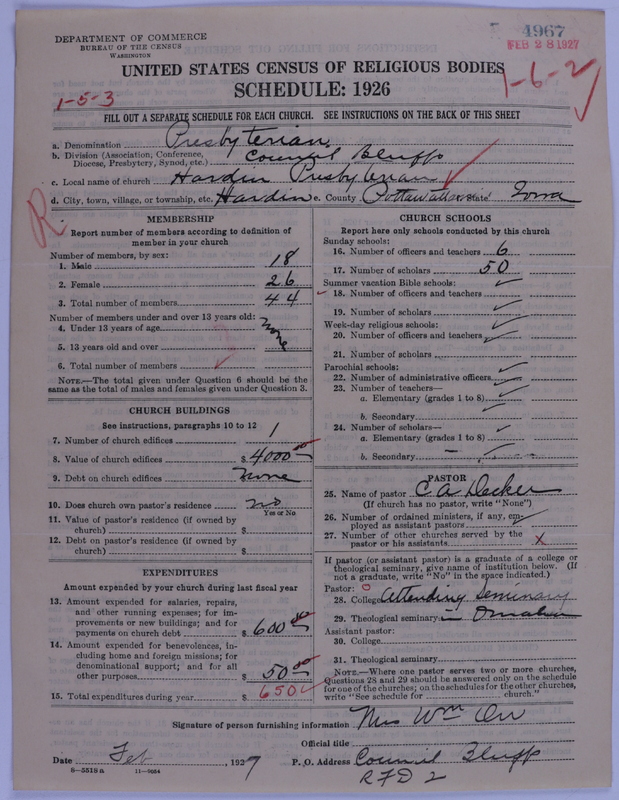 DEPARTMENT OF COMMERCE
BUREAU OF THE CENSUS
WASHINGTON
4967
FEB 28 1927
UNITED STATES CENSUS OF RELIGIOUS BODIES
SCHEDULE: 1926
1-5-3
1-6-2
FILL OUT A SEPARATE SCHEDULE FOR EACH CHURCH. SEE INSTRUCTIONS ON THE BACK OF THIS SHEET
a. Denomination Presbyterian.
b. Division (Association, Conference, Diocese, Presbytery, Synod, etc.) Council Bluffs
c. Local name of church Hardin Presbyterian
d. City, town, village, or township, etc. Hardin e. County Pottawattamie State Iowa
R
MEMBERSHIP
Report number of members according to definition of
member in your church
Number of members, by sex:
1. Male 18
2. Female 26
3. Total number of members 44
Number of members under and over 13 years old:
4. Under 13 years of age none
5. 13 years old and over
6. Total number of members
NOTE.—The total given under Question 6 should be the
same as the total of males and females given under Question 3.
CHURCH BUILDINGS
See instructions, paragraphs 10 to 12
7. Number of church edifices 1
8. Value of church edifices $ 4000 00
9. Debt on church edifices none
10. Does church own pastor's residence no
Yes or No
11. Value of pastor's residence (if owned by
church) $
12. Debt on pastor's residence (if owned by
church) $
EXPENDITURES
Amount expended by your church during last fiscal year
13. Amount expended for salaries, repairs,
and other running expenses; for im-
provements or new buildings; and for
payments on church debt $ 600 00
14. Amount expended for benevolences, in-
cluding home and foreign missions; for
denominational support; and for all
other purposes $ 50 00
15. Total expenditures during year $ 650
CHURCH SCHOOLS
Report here only schools conducted by this church
Sunday schools:
16. Number of officers and teachers 6
17. Number of scholars 50
Summer vacation Bible schools:
18. Number of officers and teachers
19. Number of scholars
Week-day religious schools:
20. Number of officers and teachers
21. Number of scholars
Parochial schools:
22. Number of administrative officers
23. Number of teachers—
a. Elementary (grades 1 to 8)
b. Secondary
24. Number of scholars—
a. Elementary (grades 1 to 8)
b. Secondary
PASTOR
25. Name of pastor C A Decker
(If church has no pastor, write "None")
26. Number of ordained ministers, if any, em-
ployed as assistant pastors
27. Number of other churches served by the
pastor or his assistants X
If pastor (or assistant pastor) is a graduate of a college or
theological seminary, give name of institution below. (If
not a graduate, write "No" in the space indicated.)
Pastor: 0
28. College Attending Seminary
29. Theological seminary Omaha
Assistant pastor:
30. College
31. Theological seminary
NOTE.—Where one pastor serves two or more churches,
Questions 28 and 29 should be answered only on the schedule
for one of the churches; on the schedules for the other churches,
write "See schedule for church."
Signature of person furnishing information Mrs Wm Orr
Official title
Date Feb, 1927 P. O. Address Council Bluffs
8—5518a 11—9064
RFD 2